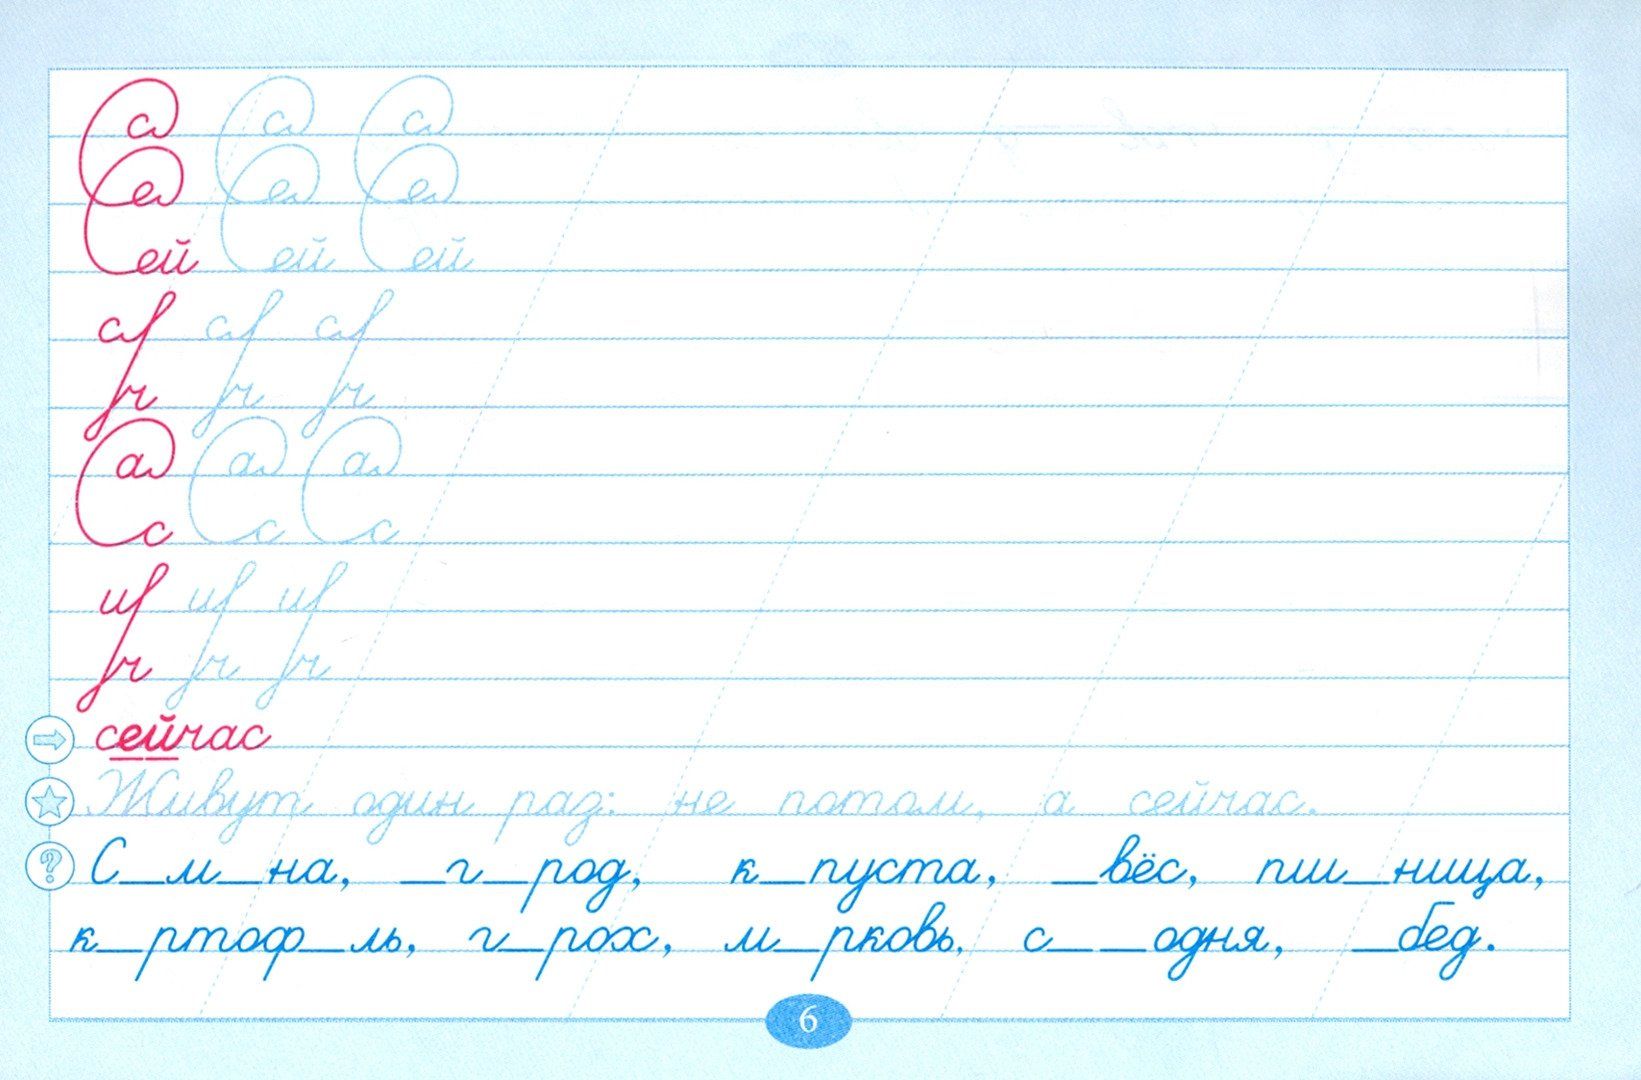 Са Са Са
Се Се Се
Сей Сей Сей
ар ар ар
гч гч гч
Са Са Са
с с с
ир ир ир
гч гч гч
сейчас
Живут один раз: не потом, а сейчас.
С_м_на, _г_род, к_пуста, _вёс, пш_ница,
к_ртоф_ль, г_рох, м_рковь, с_ _одня, _бед.
6